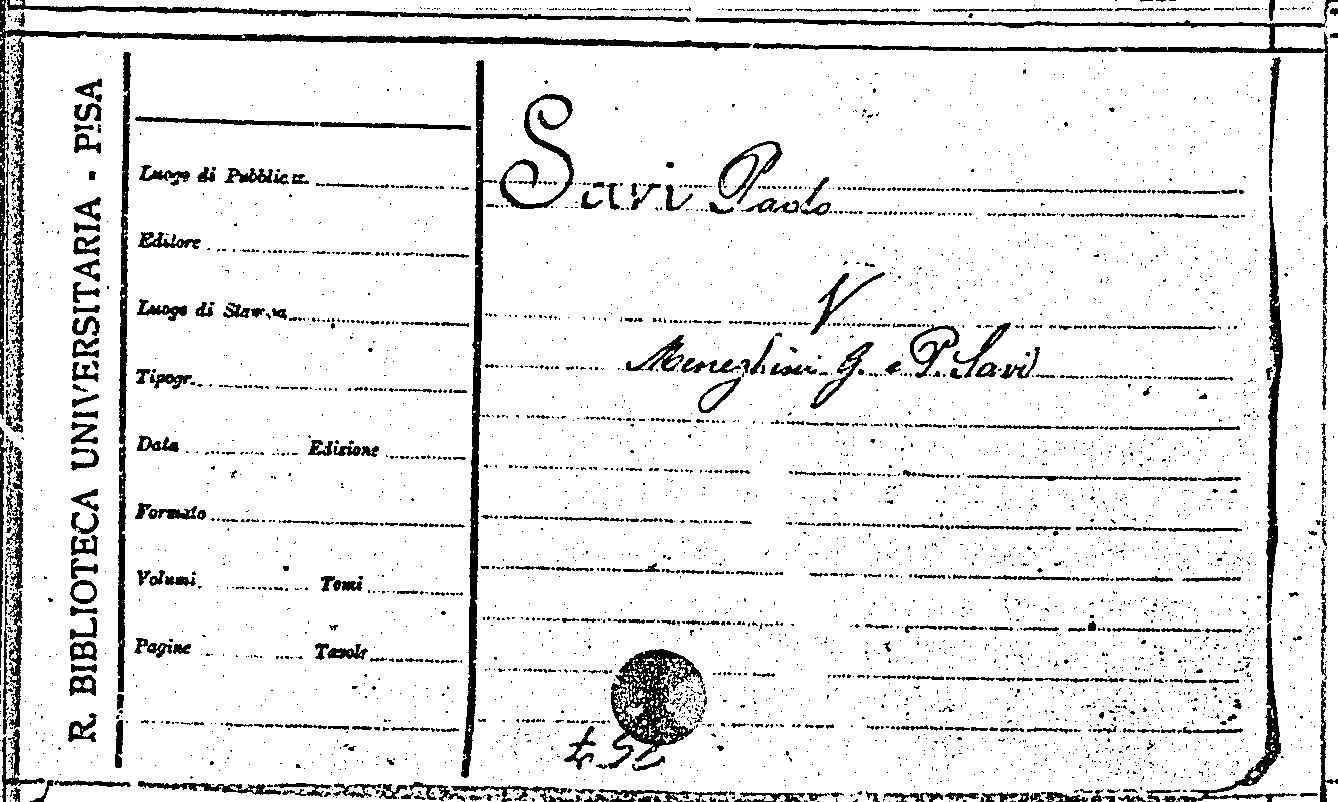 R. BIBLIOTECA UNIVERSITARIA - PISA
Luogo di Pubblicaz.
Editore
Luogo di Stampa
Tipogr.
Data Edizione
Formato
Volumi Tomi
Pagine Tavole
Savi Paolo
V
Meneghini G. e P. Savi